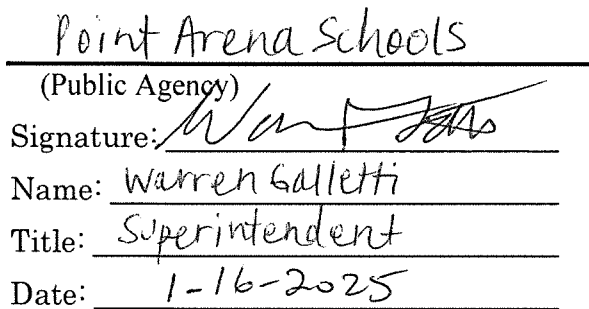 Point Arena Schools
(Public Agency)
Signature:
Name: Warren Galletti
Title: Superintendent
Date: 1-16-2025